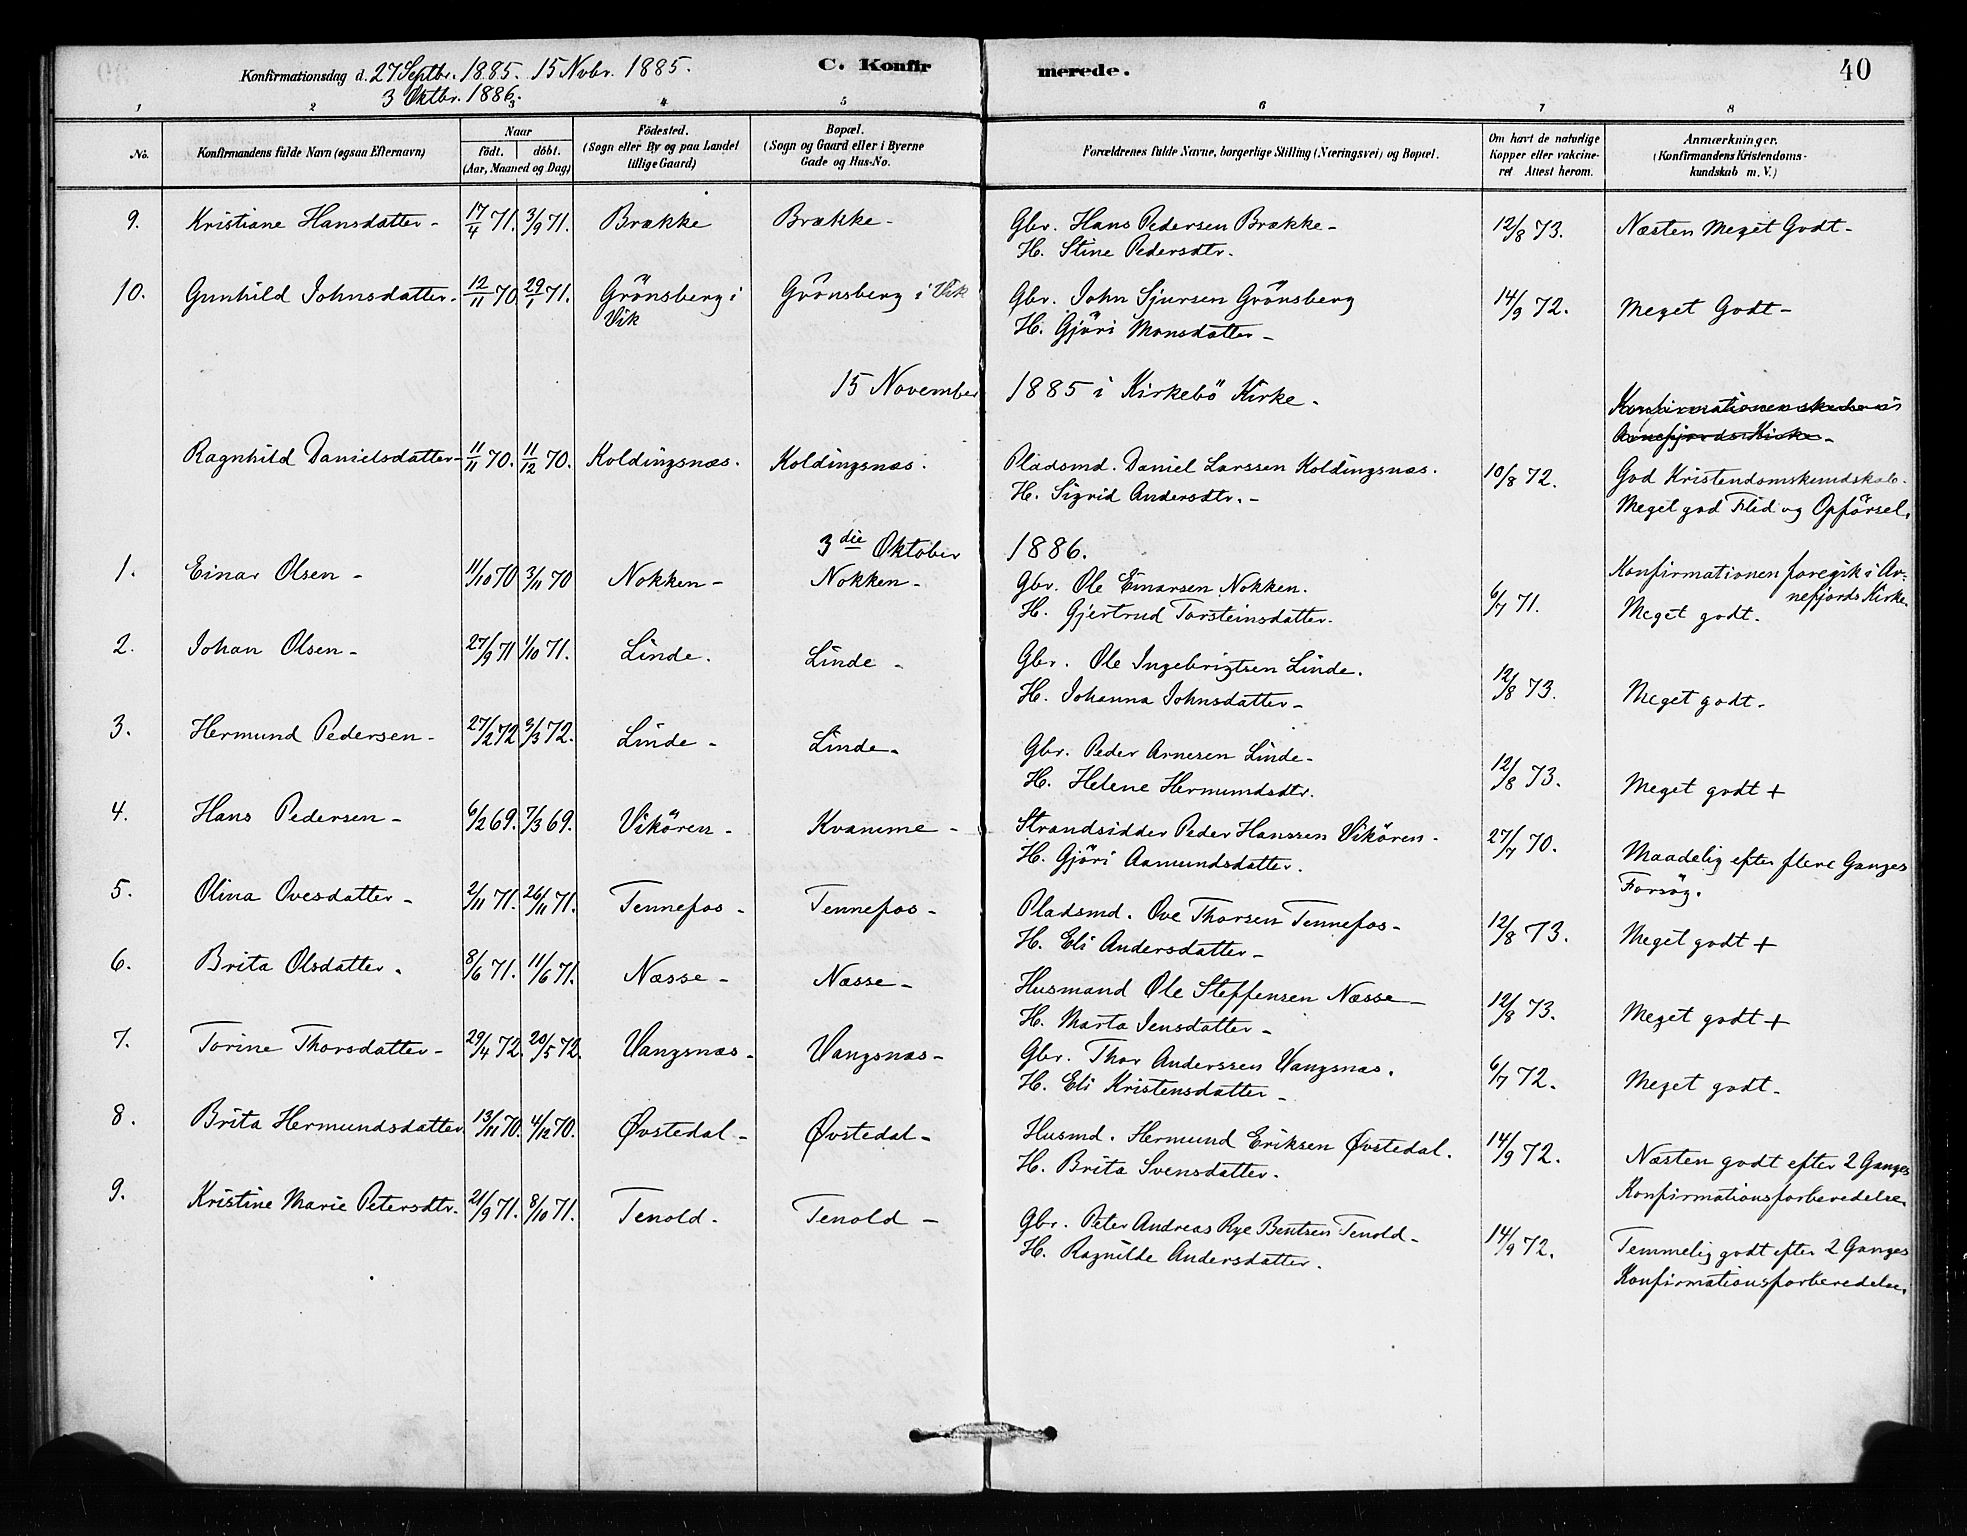 Konfirmationsdag d. 27 Septbr. 1885. 15 Novbr. 1885. C. Konfirmerede. 40
3 Oktbr. 1886.
1 2 3 4 5 6 7 8
No. Konfirmandens fulde Navn (ogsaa Efternavn) Naar födt. döbt. (Aar, Maaned og Dag) Födested. (Sogn eller By og paa Landet tillige Gaard) Bopæl. (Sogn og Gaard eller i Byerne Gade og Hus-No. Forældrenes fulde Navne, borgerlige Stilling (Næringsvei) og Bopæl. Om havt de naturlige Kopper eller vakcineret Attest herom. Anmærkninger. (Konfirmandens Kristendomskundskab m. V.)
9. Kristiane Hansdatter - 17/4 71. 3/9 71. Brække Brække - Gbr. Hans Pedersen Brække - 12/8 73. Næsten Meget Godt -
H. Stine Pedersdtr.
10. Gunhild Johnsdatter. 12/11 70 29/1 71. Grönsberg i Vik Grönsberg i Vik Gbr. John Sjursen Grönsberg 14/9 72. Meget Godt -
H. Gjöri Monsdatter -
15 November 1885 i Kirkebö Kirke -
Konfirmationen skede i
Arnefjords Kirke -
Ragnhild Danielsdatter - 11/11 70. 11/12 70. Koldingsnæs. Koldingsnæs. Pladsmd. Daniel Larssen Koldingsnæs. 10/8 72. God Kristendomskundskab.
H. Sigrid Andersdtr. - Meget god Flid og Opförsel.
3die Oktober 1886.
Konfirmationen foregik i Arnefjords Kirke
1. Einar Olsen - 11/10 70 3/11 70 Nokken - Nokken - Gbr. Ole Einarsen Nokken. 6/7 71. Meget godt.
H. Gjertrud Torsteinsdatter.
2. Johan Olsen - 27/9 71 1/10 71. Linde. Linde - Gbr. Ole Ingebrigtsen Linde. 12/8 73. Meget godt.
H. Johanna Johnsdatter -
3. Hermund Pedersen - 27/2 72 3/3 72. Linde - Linde - Gbr. Peder Arnesen Linde - 12/8 73. Meget godt +
H. Helene Hermundsdtr.
4. Hans Pedersen - 6/2 69. 7/3 69. Vikören - Kvamme - Strandsidder Peder Hanssen Vikören - 27/7 70. Maadelig efter flere Ganges
H. Gjöri Aamundsdatter. Forsög.
5. Olina Ovesdatter - 2/11 71. 26/11 71. Tennefos - Tennefos - Pladsmd. Ove Thorsen Tennefos - 12/8 73. Meget godt +
H. Eli Andersdatter -
6. Brita Olsdatter. 8/6 71. 11/6 71. Næsse - Næsse - Husmand Ole Steffensen Næsse - 12/8 73. Meget godt +
H. Marta Jensdatter -
7. Torine Thorsdatter - 29/4 72. 20/5 72. Vangsnæs - Vangsnæs - Gbr. Thor Anderssen Vangsnæs. 6/7 72. Meget godt -
H. Eli Kristensdatter -
8. Brita Hermundsdatter 13/11 70. 4/12 70. Øvstedal - Øvstedal - Husmd. Hermund Eriksen Øvstedal. 14/9 72. Næsten godt efter 2 Ganges
H. Brita Svensdatter. Konfirmationsforberedelse.
9. Kristine Marie Petersdtr. 21/9 71. 8/10 71. Tenold - Tenold - Gbr. Peter Andreas Rye Bentsen Tenold - 14/9 72. Temmelig godt efter 2 Ganges
H. Ragnilde Andersdatter. Konfirmationsforberedelse.